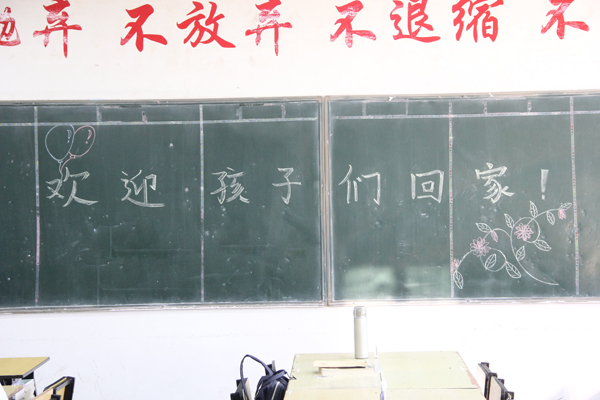 抛弃 不放弃 不退缩 不
欢迎孩子们回家!